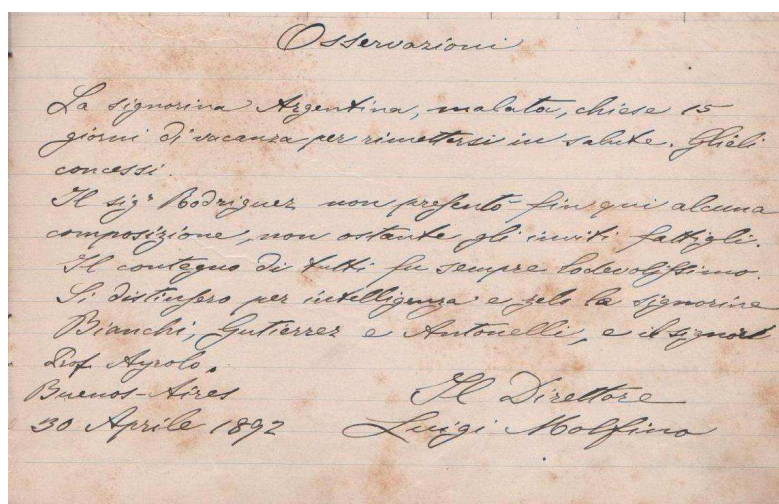 Osservazioni
La signorina Argentina, malata, chiese 15
giorni di vacanza per rimettersi in salute. Glieli
concessi.
Il sigʳ Rodriguez non presentò fin qui alcuna
composizione, non ostante gli inviti fattigli.
Il contegno di tutti fu sempre lodevolissimo.
Si distinsero per intelligenza e zelo la signorine
Bianchi, Gutierrez e Antonelli, e il signor
Prof Ayrolo.
Buenos-Aires Il Direttore
30 Aprile 1892 Luigi Molfino